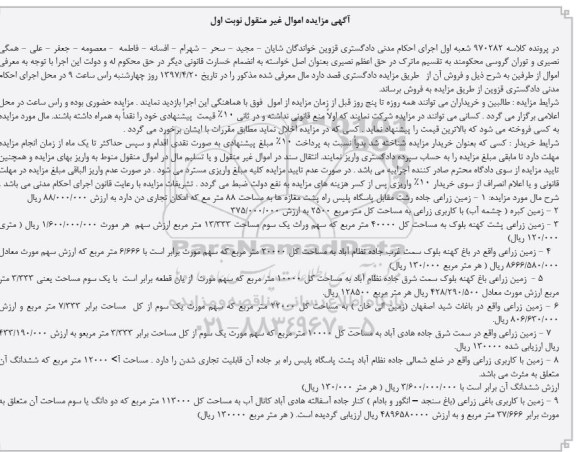 آگهی مزایده اموال غیر منقول نوبت اول
در پرونده کلاسه ۹۷۰۲۸۲ شعبه اول اجرای احکام مدنی دادگستری قزوین خواندگان شایان - مجید - سحر - شهرام - افسانه - فاطمه - معصومه - جعفر - علی - همگی
نصیری و توران گروسی محکومند به تقسیم ماترک در حق اعظم نصیری بعنوان اصل خواسته به انضمام خسارت قانونی دیگر در حق محکوم له و دولت این اجرا با توجه به معرفی
اموال از طرفین به شرح ذیل و فروش آن از طریق مزایده دادگستری قصد دارد مال معرفی شده مذکور را در تاریخ ۱۳۹۷/۴/۲۰ روز چهارشنبه راس ساعت ۹ در محل اجرای احکام
مدنی دادگستری قزوین از طریق مزایده به فروش برساند.
شرایط مزایده : طالبین و خریداران می توانند همه روزه تا پنج روز قبل از زمان مزایده از اموال فوق با هماهنگی این اجرا بازدید نمایند . مزایده حضوری بوده و راس ساعت در محل
اعلامی برگزار می گردد . کسانی می توانند در مزایده شرکت نمایند که اولا منع قانونی نداشته و در ثانی ۱۰٪ قیمت پیشنهادی خود را نقداً به همراه داشته باشند. مال مورد مزایده
به کسی فروخته می شود که بالاترین قیمت را پیشنهاد نماید . کسی که در مزایده اخلال نماید مطابق مقررات با ایشان برخورد می گردد .
شرایط خریدار : کسی که بعنوان خریدار مزایده شناخته شد بدوا نسبت به پرداخت ۱۰٪ مبلغ پیشنهادی به صورت نقدی اقدام و سپس حداکثر تا یک ماه از زمان انجام مزایده
مهلت دارد تا مابقی مبلغ مزایده را به حساب سپرده دادگستری واریز نماید. انتقال سند در اموال غیر منقول و یا تسلیم مال در اموال منقول منوط به واریز بهای مزایده و همچنین
تایید مزایده از سوی دادگاه محترم صادر کننده اجرائیه می باشد . در صورت عدم تایید مزایده کلیه مبلغ واریزی مسترد می شود . در صورت عدم واریز الباقی مبلغ مزایده در مهلت
قانونی و یا اعلام انصراف از سوی خریدار ۱۰٪ واریزی پس از کسر هزینه های مزایده به نفع دولت ضبط می گردد . تشریفات مزایده با رعایت قانون اجرای احکام مدنی می باشد .
شرح مال مورد مزایده: ۱ - زمین زراعی جاده رشت مقابل پاسگاه پلیس راه پشت مغازه ها به مساحت ۸۸ متر مع که امکان تجاری دن دارد به ارزش ۸۸/۰۰۰/۰۰۰ ریال
۲ - زمین کبره ( چشمه آب) با کاربری زراعی به مساحت کل متر مربع ۲۵۰۰ به ارزش ۳۷۵/۰۰۰/۰۰۰
۳ - زمین زراعی پشت کهنه بلوک به مساحت کل ۴۰۰۰۰ متر مربع که سهم وراث یک سوم مساحت ۱۳/۳۳۳ متر مربع ارزش سهم هر مورث ۱/۶۰۰/۰۰۰/۰۰۰ ریال ( متری
۱۲۰/۰۰۰ ریال)
۴ - زمین زراعی واقع در باغ کهنه بلوک سمت غرب جاده نظام آباد به مساحت کل ۲۰۰۰۰ متر مربع که سهم مورث برابر است با ۶/۶۶۶ متر مربع که ارزش سهم مورث معادل
۸۶۶۶/۵۸۰/۰۰۰ ریال ( هر متر مربع ۱۳۰/۰۰۰ ریال)
۵ - زمین زراعی باغ کهنه بلوک سمت شرق جاده نظام آباد به مساحت کل ۱۰۰۰۰ متر مربع که سهم مورث از یان قطعه برابر است با یک سوم مساحت یعنی ۳/۳۳۳ متر
مربع ارزش مورث معادل ۴۲۸/۲۹۰/۵۰۰ ریال هر متر مربع ۱۲۸۵۰۰ ریال
۶ - زمین زراعی واقع در باغات شید اصفهان (زمین لی خان ) به مساحت کل ۲۲۰۰۰ متر مربع که سهم مورث یک سوم از کل مساحت برابر ۷/۳۳۳ متر مربع و ارزش
۸۰۶/۶۳۰/۰۰۰ ریال.
۷ - زمین زراعی واقع در سمت شرق جاده هادی آباد به مساحت کل ۱۰۰۰۰ متر مربع که سهم مورث یک سوم از کل مساحت برابر ۳/۳۳۳ متر مربعو به ارزش ۴۳۳/۱۹۰/۰۰۰
ریال ارزیابی شده ۱۳۰۰۰۰ ریال.
۸ - زمین با کاربری زراعی واقع در ضلع شمالی جاده نظام آباد پشت پاسگاه پلیس راه بر جاده آن قابلیت تجاری شدن را دارد . مساحت آ> ۱۲۰۰۰ متر مربع که ششدانگ آن
متعلق به مثرت می باشد.
ارزش ششدانگ آن برابر است با ۳/۶۰۰/۰۰۰/۰۰۰ ریال ( هر متر ۱۳۰/۰۰۰ ریال)
۹ - زمین با کاربری باغی زراعی (باغ سنجد – انگور و بادام ) کنار جاده آسفالته هادی آباد کانال آب به مساحت کل ۱۱۳۰۰۰ متر مربع که دو دانگ یا سوم مساحت آن متعلق به
مورث برابر ۳۷/۶۶۶ متر مربع و به ارزش ۴۸۹۶۵۸۰۰۰۰ ریال ارزیابی گردیده است. ( هر متر مربع ۱۳۰۰۰۰ ریال)
ParsNamadData
۰۲۱-۸۸۳۴۹۶۷۰-۵